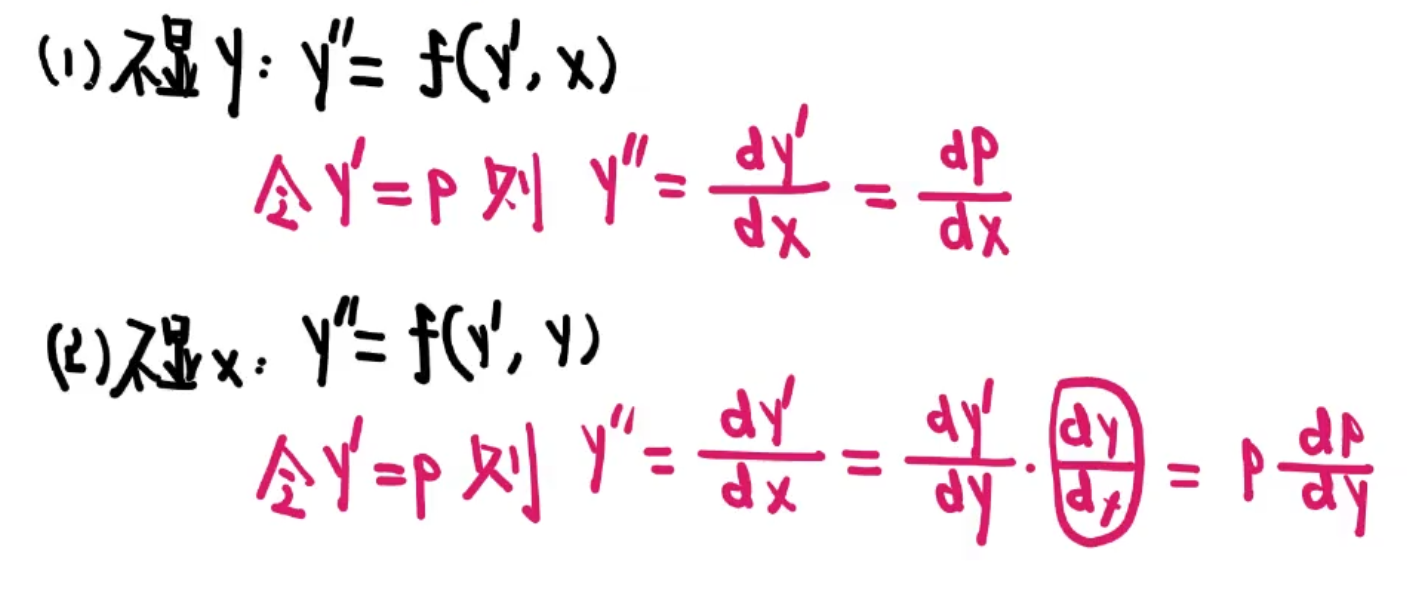 (1)不显y: y''= f(y', x)
令y'=p 则 y''= dy'/dx = dp/dx
(2)不显x: y''= f(y', y)
令y'=p 则 y''= dy'/dx = dy'/dy · dy/dx = p dp/dy